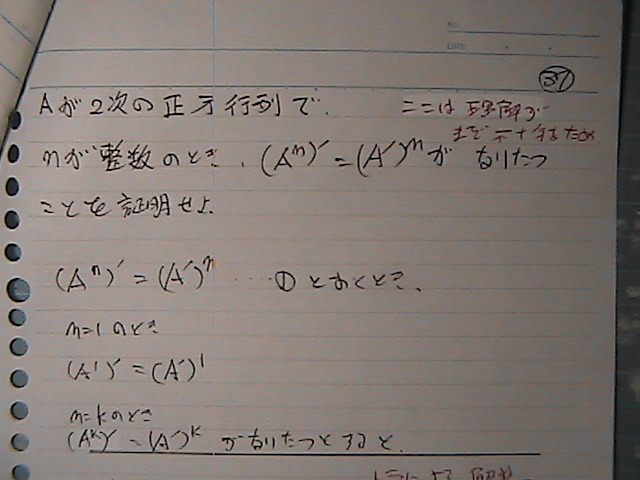 NO.
DATE
37
Aが2次の正方行列で、
ここは理解が
まだ不十分なため
nが整数のとき、(Aⁿ)′=(A′)ⁿが なりたつ
ことを証明せよ
(Aⁿ)′=(A′)ⁿ ……① とおくとき、
n=1のとき
(A¹)′=(A′)¹
n=kのとき
(Aᵏ)′=(A′)ᵏ がなりたつとすると